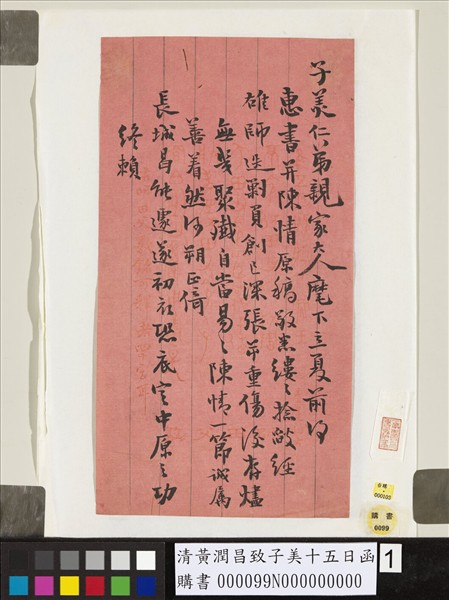 子美仁弟親家大人麾下立夏前得
惠書并陳情原稿敬悉縷〻捻經
雄師迭剿負創已深張重傷後存燼
無幾聚殲自當易〻陳情一節誠屬
善着然河朔正倚
長城曷能遽遂初衣恐底定中原之功
終賴
000103
購書
0099
清黃潤昌致子美十五日函
購書 000099N000000000
1